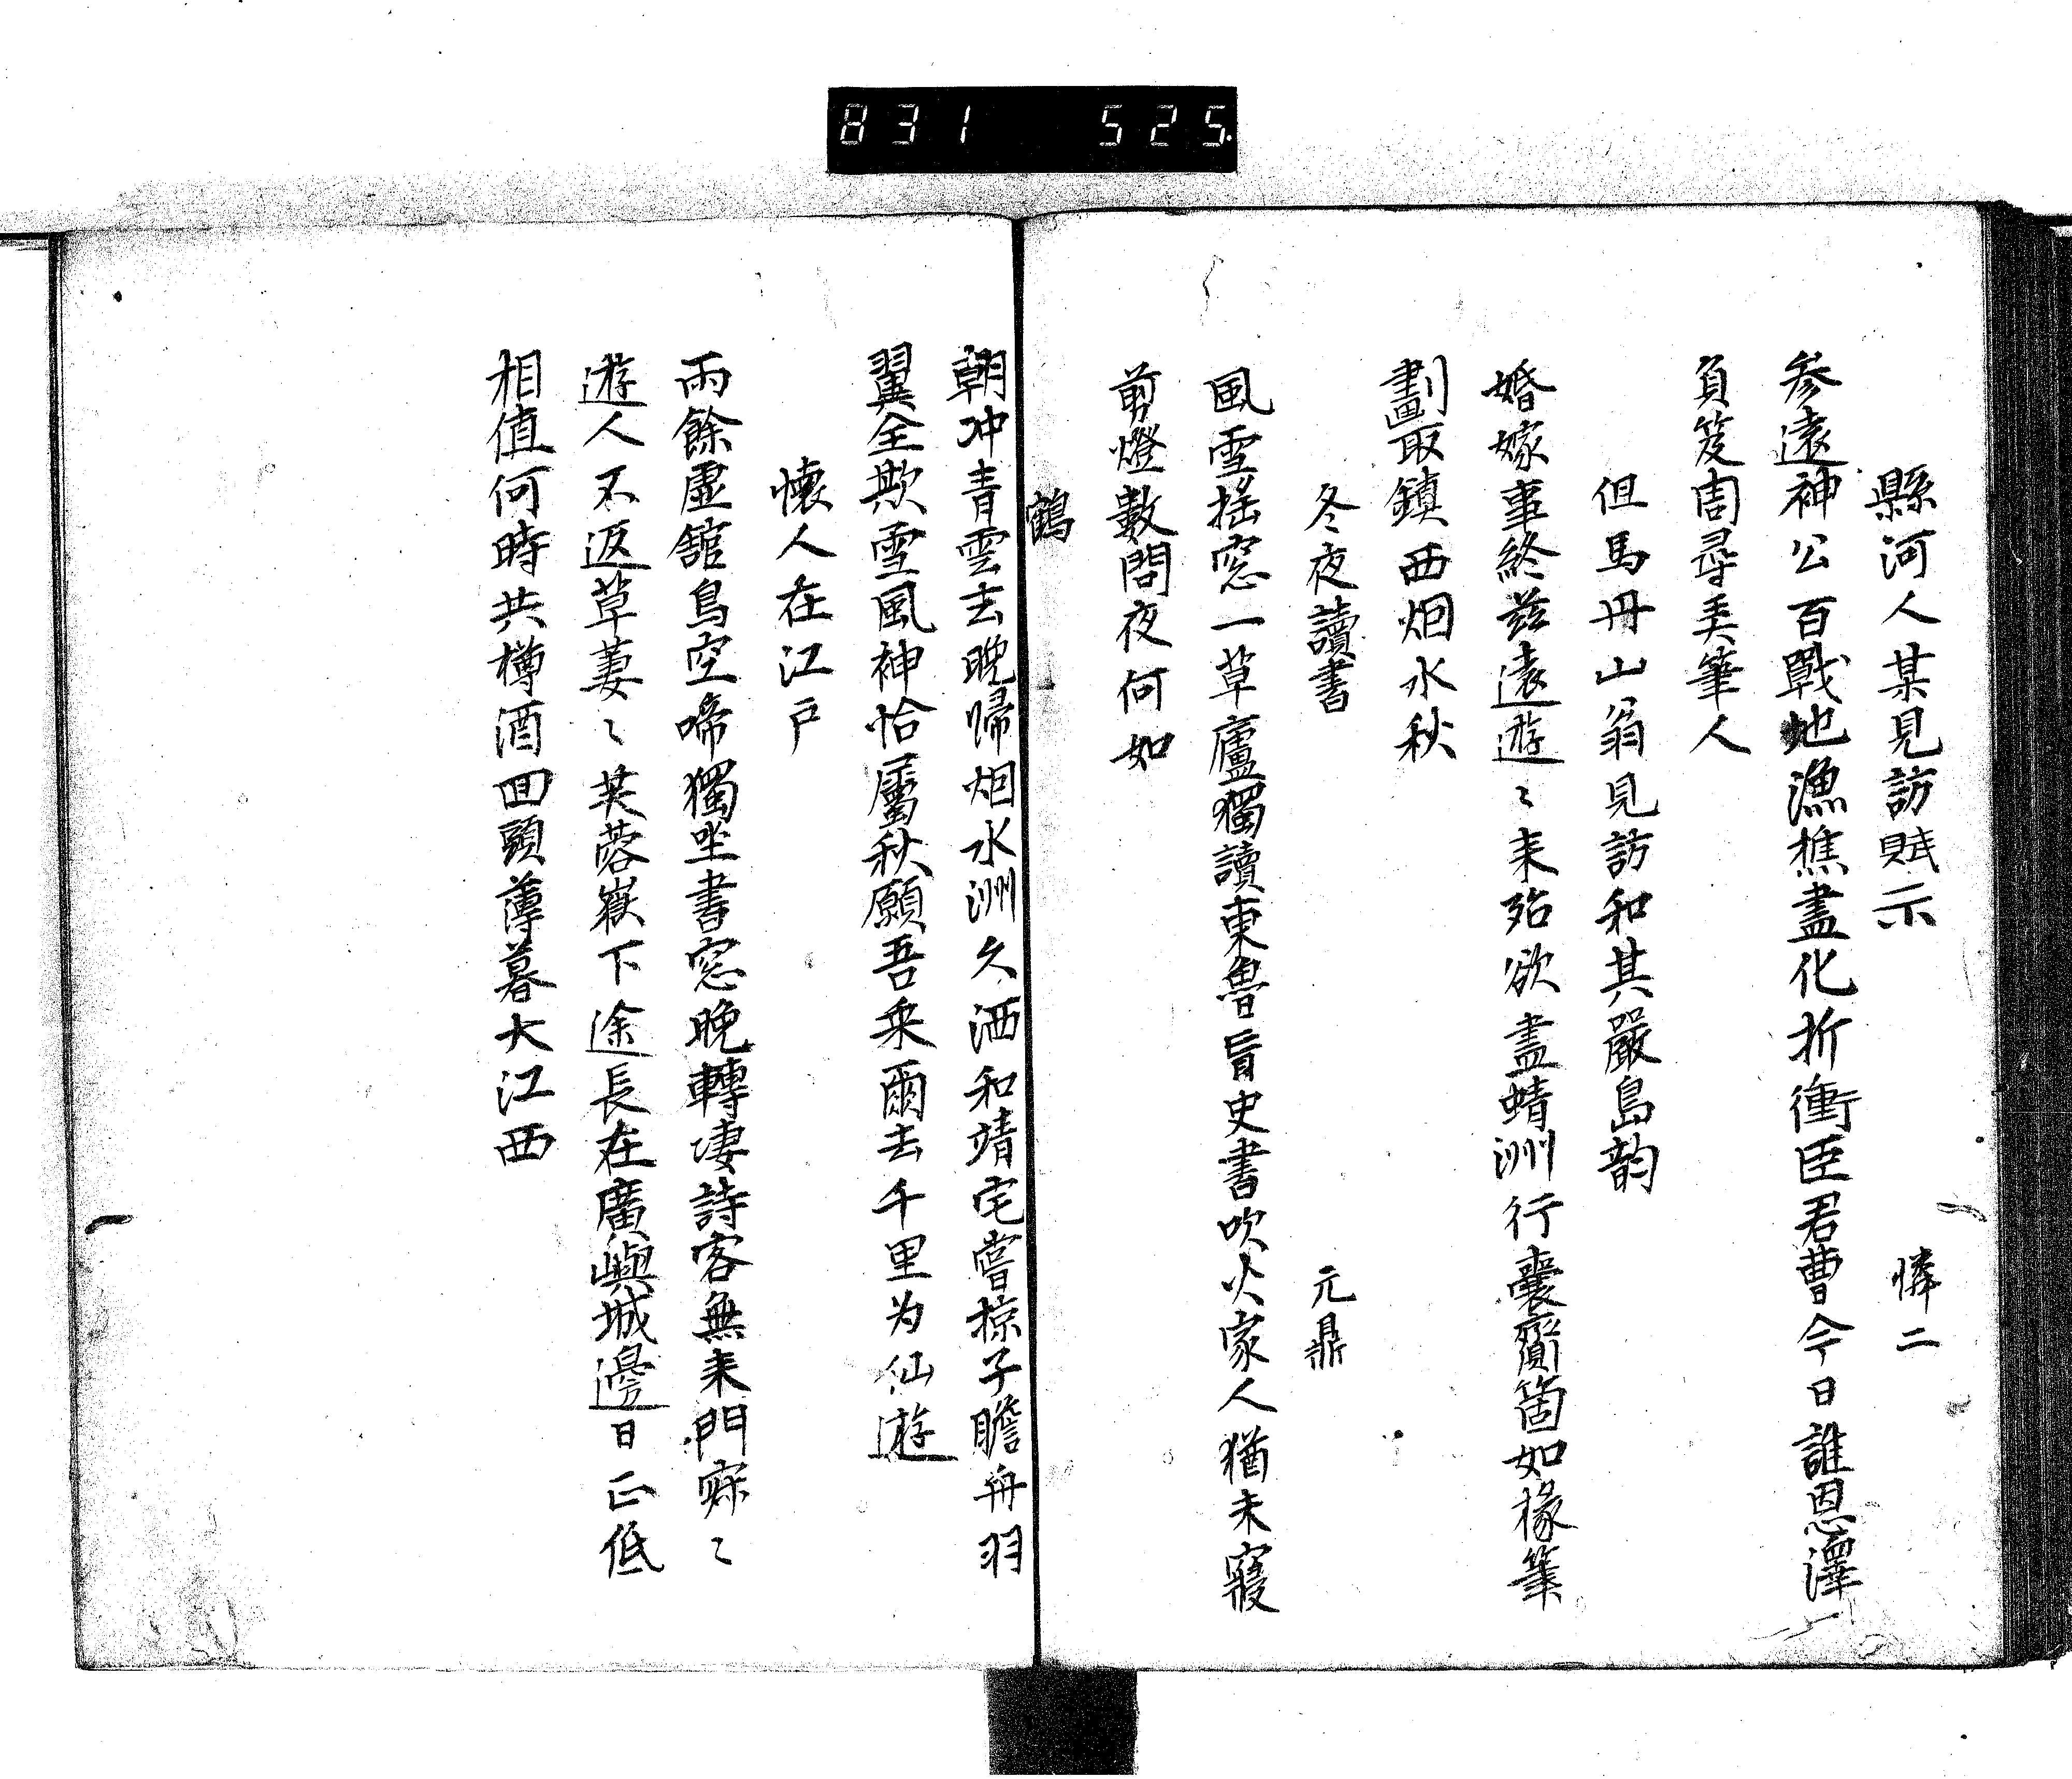 831 525
縣河人某見訪賦示 憐二
参遠神公百戰地漁樵盡化折衝臣君曹今日誰恩澤
負笈周尋美筆人
但馬丹山翁見訪和其嚴島韵
婚嫁事終兹遠遊〻来殆欲盡蜻洲行嚢齎箇如椽筆
劃取鎮西烟水秋
冬夜讀書 元鼎
風雪揺窓一草廬獨讀東魯盲史書吹火家人猶未寢
剪燈數問夜何如
鶴
朝冲青雲去晩帰烟水洲久洒和靖宅嘗掠子瞻舟羽
翼全欺雪風神恰属秋願吾乗爾去千里为仙遊
懐人在江戸
雨餘虚舘鳥空啼獨坐書窓晩轉凄詩客無来門寂〻
遊人不返草萋〻芙蓉嶽下途長在廣嶼城邊日正低
相值何時共樽酒回頭薄暮大江西